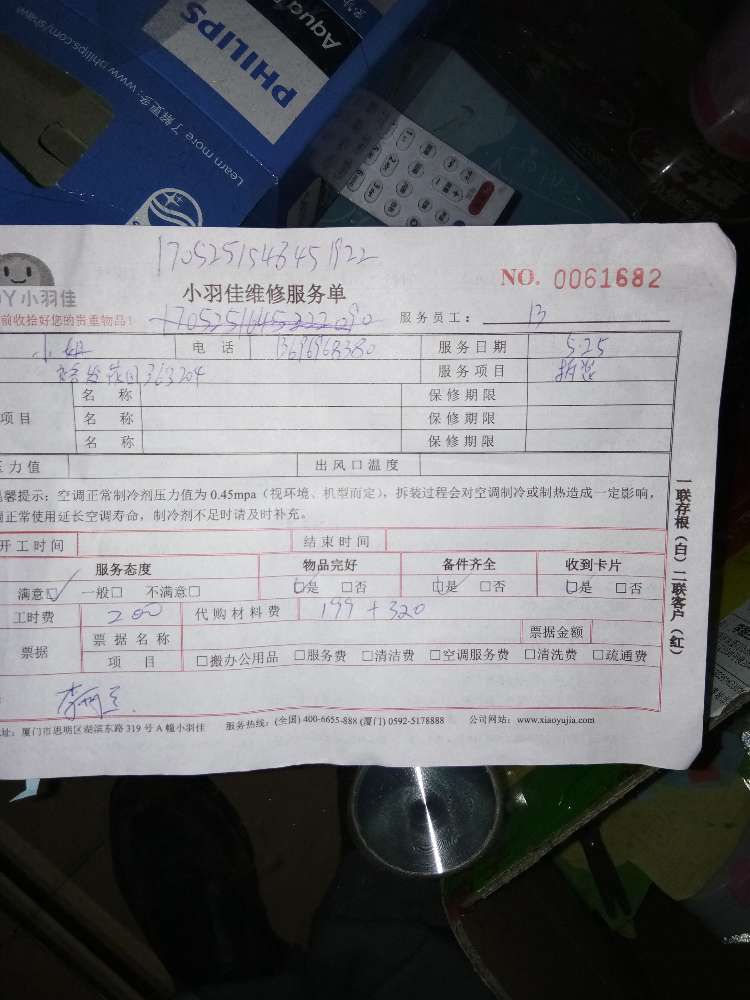 PHILIPS
Aqua
www.philips.com/shave
Learn more 了解更多:
1705251546451922
NO. 0061682
小羽佳
小羽佳维修服务单
前收拾好您的贵重物品!
服务员工: 13
小姐 电话 服务日期 5.25
363204 服务项目 拆装
名称 保修期限
项目 名称 保修期限
名称 保修期限
压力值 出风口温度
温馨提示:空调正常制冷剂压力值为 0.45mpa(视环境、机型而定),拆装过程会对空调制冷或制热造成一定影响,
正常使用延长空调寿命,制冷剂不足时请及时补充。
开工时间 结束时间
服务态度 物品完好 备件齐全 收到卡片
满意☑ 一般□ 不满意□ ☑是 □否 ☑是 □否 ☑是 □否
工时费 200 代购材料费 199+320
票据 票据名称 票据金额
项目 □搬办公用品 □服务费 □清洁费 □空调服务费 □清洗费 □疏通费
址:厦门市思明区湖滨东路 319 号 A 幢小羽佳 服务热线:(全国) 400-6655-888 (厦门) 0592-5178888 公司网站:www.xiaoyujia.com
一联存根(白)二联客户(红)